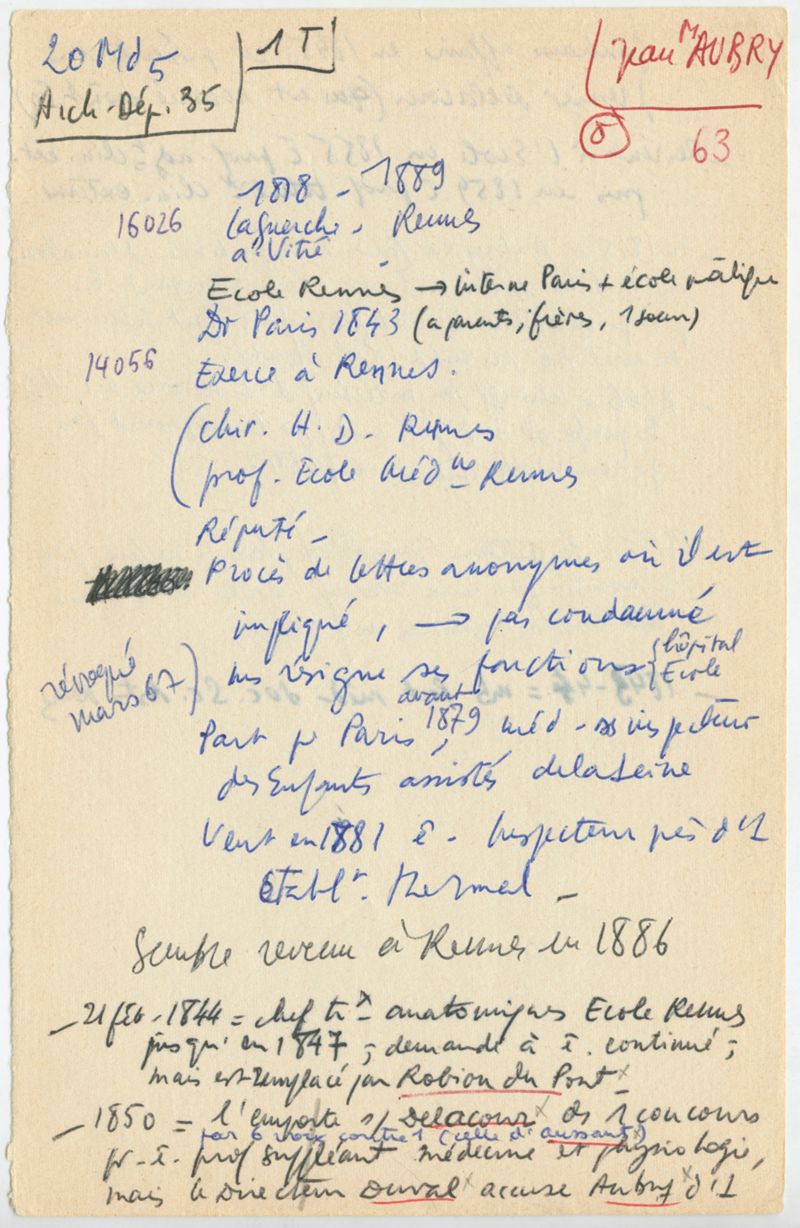 20 Md5
1 T
Jean M AUBRY
Arch-Dép. 35
⑧ 63
1818 - 1889
16026 Laguerche - Rennes
à Vitré
Ecole Rennes → interne Paris + école pratique
Dr Paris 1843 (a parents, frères, 1 sœur)
14056 Exerce à Rennes.
(chir. H. D. Rennes
prof. Ecole Médne Rennes
Réputé -
Procès de lettres anonymes où il est
impliqué, → pas condamné
révoqué mars 67) ms résigne ses fonctions { hôpital Ecole
Part pr Paris, avant 1879 méd-ss inspecteur
des Enfants assistés de la Seine
Veut en 1881 ê. Inspecteur près d'1
Etablt. thermal -
Semble revenu à Rennes en 1886
- 21 fév. 1844 = chef trx anatomiques Ecole Rennes
jusqu'en 1847 ; demande à ê. continué ;
mais est remplacé par Robion du Pont x
- 1850 = l'emporte s/ Delacour x ds 1 concours
par 6 voix contre 1 (celle d'Aussant)
pr ê. prof suppléant médecine et physiologie,
mais le Directeur Duval x accuse Aubry x d'1